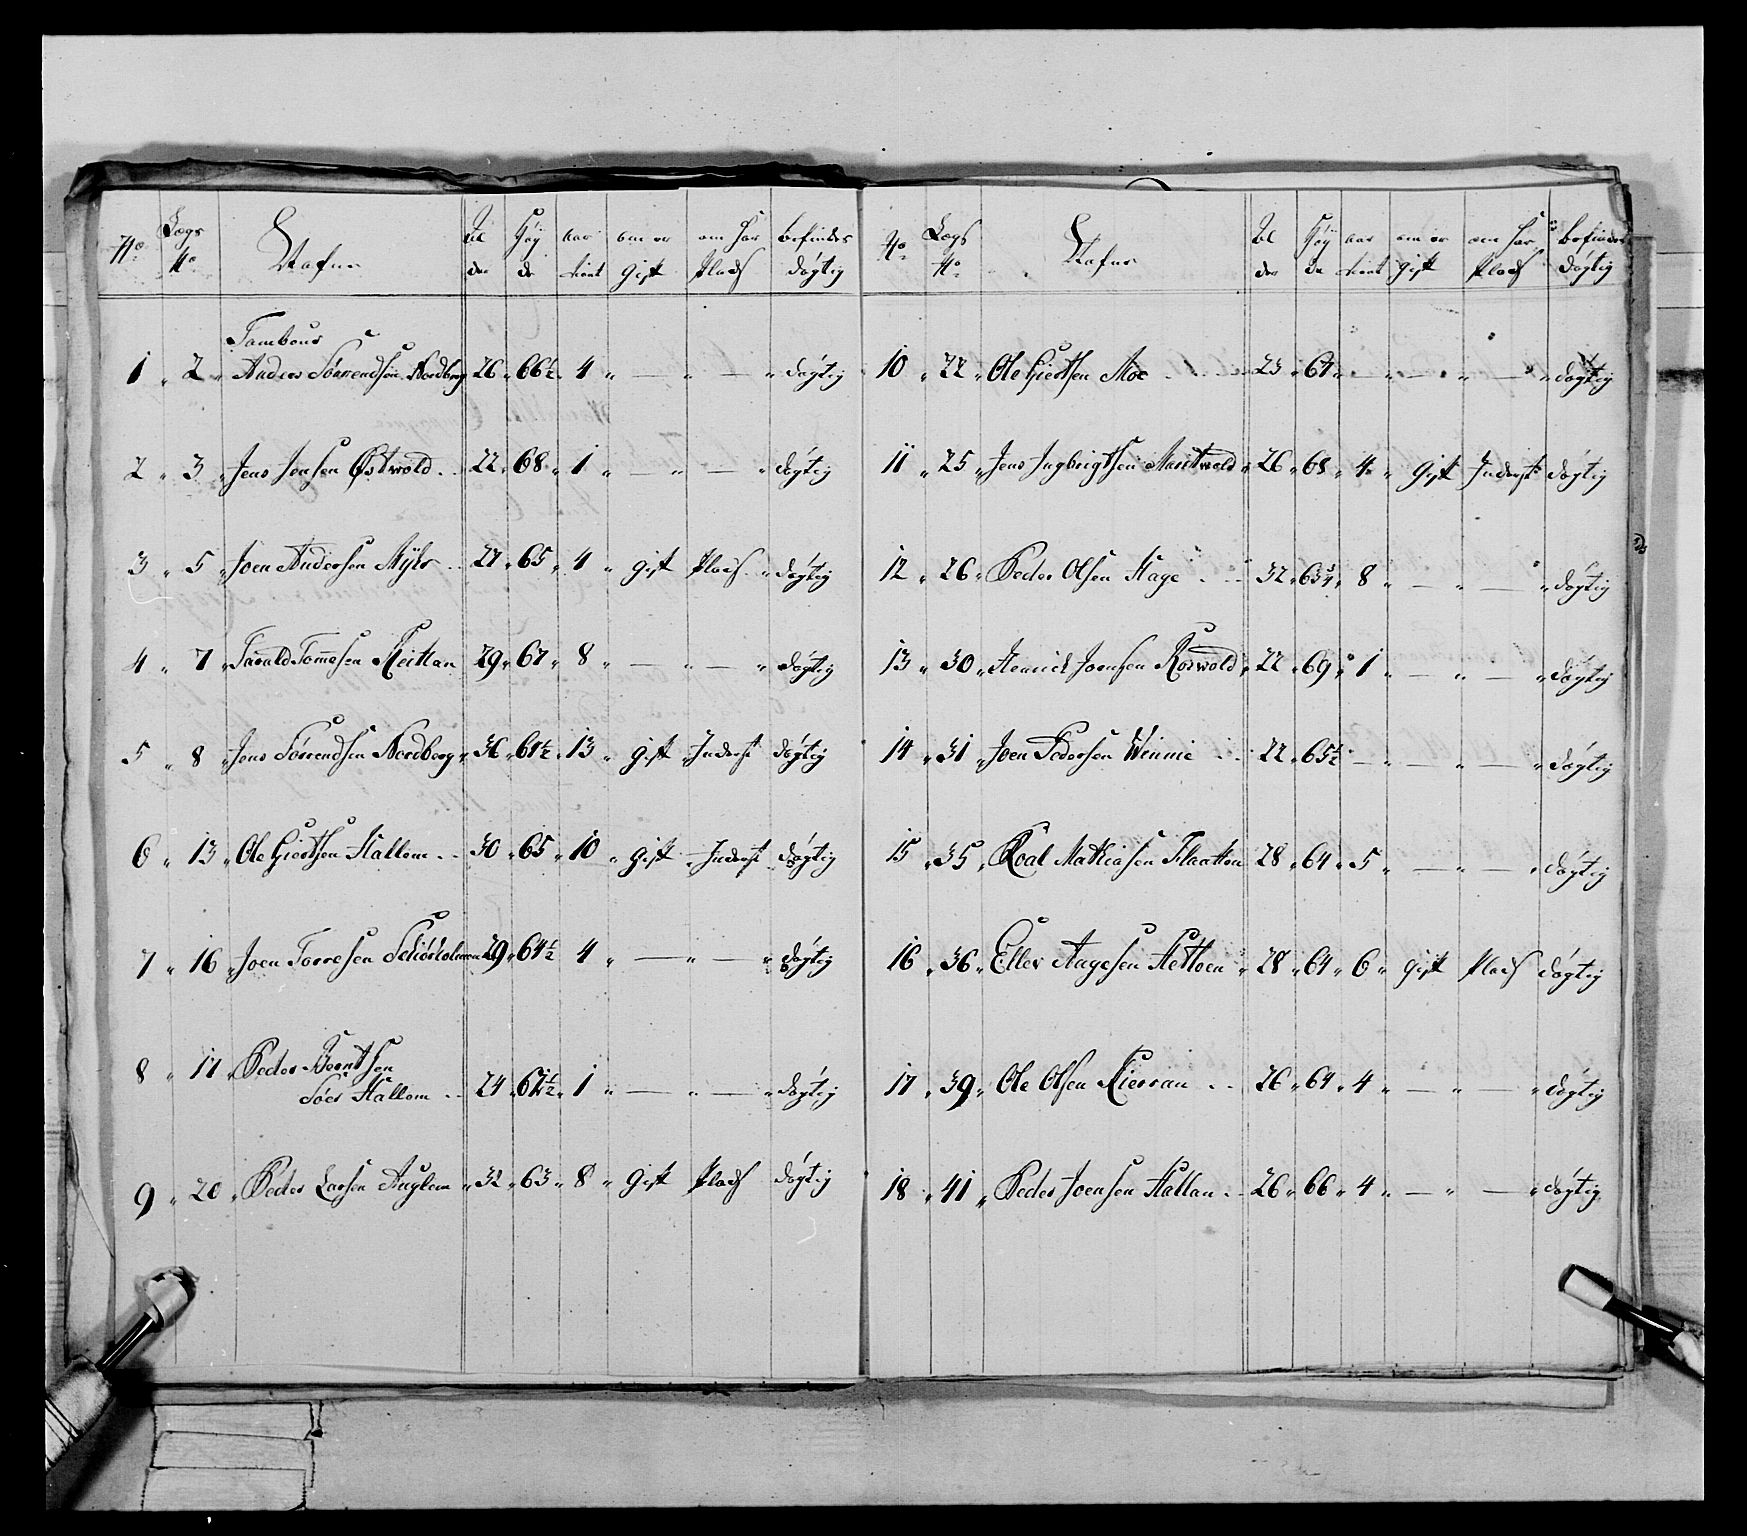 No Lægs No Nafne Al der Høy de aar tient om er gift om har Plads befindes døgtig
Tambour
1 " 2 " Anders Sørrendsen Nordberg 26 " 66½ " 4 " — " — " døgtig
2 " 3 " Jens Jonsen Østwold 22 " 68 " 1 " — " — " døgtig
3 " 5 " Joen Andersen Myhr 22 " 65 " 4 " gift Plads " døgtig
4 " 7 " Tarald Tomesen Keitlan 29 " 67 " 8 " — " — " døgtig
5 " 8 " Jens Sørrendsen Nordberg " 36 " 61½ " 13 " gift " Inderst døgtig
6 " 13 " Ole Giertsen Hallem 30 " 65 " 10 " gift " Inderst døgtig
7 " 16 " Joen Torresen Schiørholmen 29 " 64½ 4 " — " — " døgtig
8 " 17 " Peder Berntsen
Søer Hallem 24 " 62½ " 1 " — " — " døgtig
9 " 20 " Peder Larsen Auglem " 32 " 63 " 8 " gift Plads døgtig
No Lægs No Nafne Al der Høy de aar tient om er gift om har Plads befindes døgtig
10 " 22 " Ole Giertsen Moe 23 " 64 " — " — " — " døgtig
11 " 25 " Jens Ingbrigtsen Maritwold " 26 " 68 " 4 " gift Inderst døgtig
12 " 26 " Peder Olsen Hage 32 " 63¾ " 8 " — " — " døgtig
13 " 30 " Henrick Joensen Røswold " 22 " 69 " 1 " — " — " døgtig
14 " 31 " Joen Pedersen Winnie 22 " 65½ — " — " — " døgtig
15 " 35 " Roal Mathiasen Flaatten 28 " 64 " 5 " — " — " døgtig
16 " 36 " Eller Aagesen Hetloen " 28 " 64 " 6 " gift Plads døgtig
17 " 39 " Ole Olsen Kierran 26 " 64 " 4 " — " " døgtig
18 " 41 " Peder Joensen Hallan 26 " 66 " 4 " — " — " døgtig